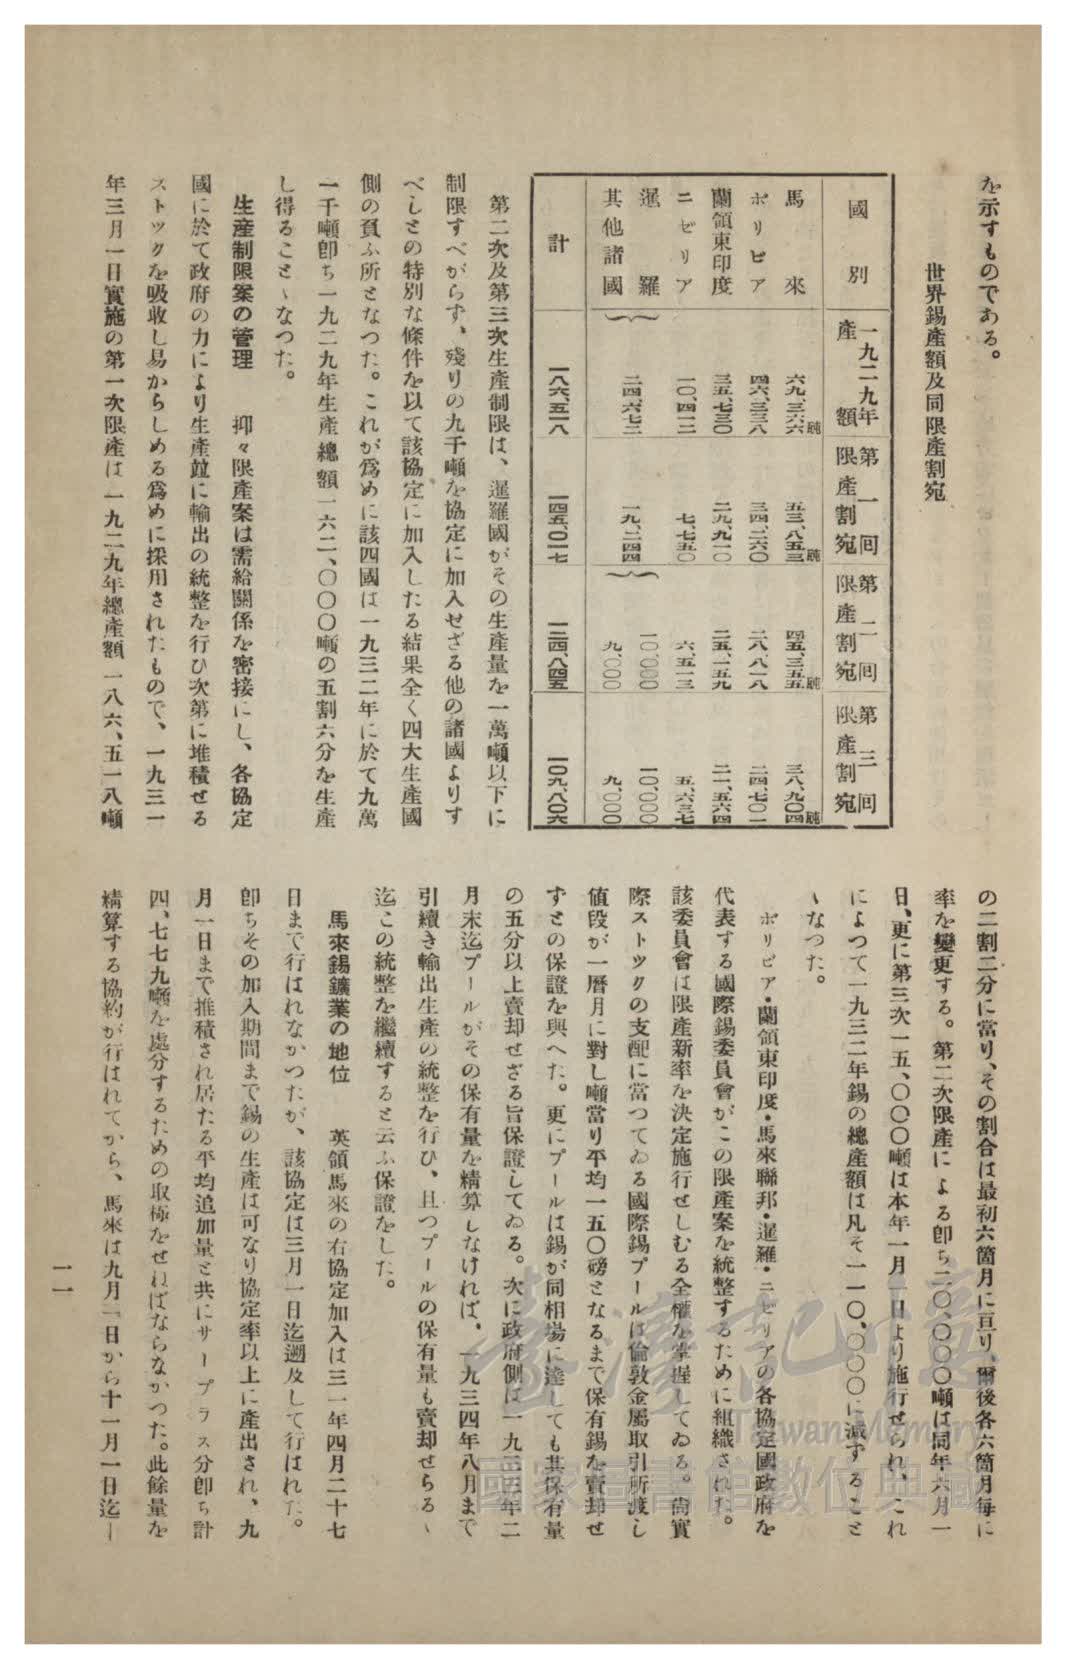 を示すものである。
世界錫產額及同限產割宛
國別 一九二九年產額 第一回限產割宛 第二回限產割宛 第三回限產割宛
馬來 六九、三六六瓲 五三、八五三瓲 四五、三五五瓲 三八、九〇四瓲
ボリビア 四六、三三八 三四、二六〇 二八、八一八 二四、七〇一
蘭領東印度 三五、七三〇 二九、九一〇 二五、一五九 二一、五六四
ニゼリア 一〇、四一二 七、七五〇 六、五一三 五、六三七
暹羅 其他諸國 二四、六七二 一九、二四四
暹羅 一〇、〇〇〇 一〇、〇〇〇
其他諸國 九、〇〇〇 九、〇〇〇
計 一八六、五一八 一四五、〇一七 一二四、八四五 一〇九、八〇六
第二次及第三次生產制限は、暹羅國がその生產量を一萬噸以下に
制限すべからず、殘りの九千噸を協定に加入せざる他の諸國よりす
べしとの特別な條件を以て該協定に加入したる結果全く四大生產國
側の負ふ所となつた。これが爲めに該四國は一九三二年に於て九萬
一千噸卽ち一九二九年生產總額一六二、〇〇〇噸の五割六分を生產
し得ることゝなつた。
生產制限案の管理 抑々限產案は需給關係を密接にし、各協定
國に於て政府の力により生產竝に輸出の統整を行ひ次第に堆積せる
ストックを吸收し易からしめる爲めに採用されたもので、一九三一
年三月一日實施の第一次限產は一九二九年總產額一八六、五一八噸
の二割二分に當り、その割合は最初六箇月に亘り、爾後各六箇月每に
率を變更する。第二次限產による卽ち二〇、〇〇〇噸は同年六月一
日、更に第三次一五、〇〇〇噸は本年一月一日より施行せられ、これ
によつて一九三二年錫の總產額は凡そ一一〇、〇〇〇に減すること
ゝなつた。
ボリビア・蘭領東印度・馬來聯邦・暹羅・ニゼリアの各協定國政府を
代表する國際錫委員會がこの限產案を統整するために組織された。
該委員會は限產新率を決定施行せしむる全權を掌握してゐる。尙實
際ストックの支配に當つてゐる國際錫プールは倫敦金屬取引所渡し
値段が一曆月に對し噸當り平均一五〇磅となるまで保有錫を賣却せ
ずとの保證を與へた。更にプールは錫が同相場に達しても其保有量
の五分以上賣却せざる旨保證してゐる。次に政府側は一九三四年二
月末迄プールがその保有量を精算しなければ、一九三四年八月まで
引續き輸出生產の統整を行ひ、且つプールの保有量も賣却せらるゝ
迄この統整を繼續すると云ふ保證をした。
馬來錫鑛業の地位 英領馬來の右協定加入は三一年四月二十七
日まで行はれなかつたが、該協定は三月一日迄遡及して行はれた。
卽ちその加入期間まで錫の生產は可なり協定率以上に產出され、九
月一日まで推積され居たる平均追加量と共にサープラス分卽ち計
四、七七九噸を處分するための取極をせねばならなかつた。此餘量を
精算する協約が行はれてから、馬來は九月一日から十一月一日迄一
一一
臺灣記憶
Taiwan Memory
國家圖書館數位典藏